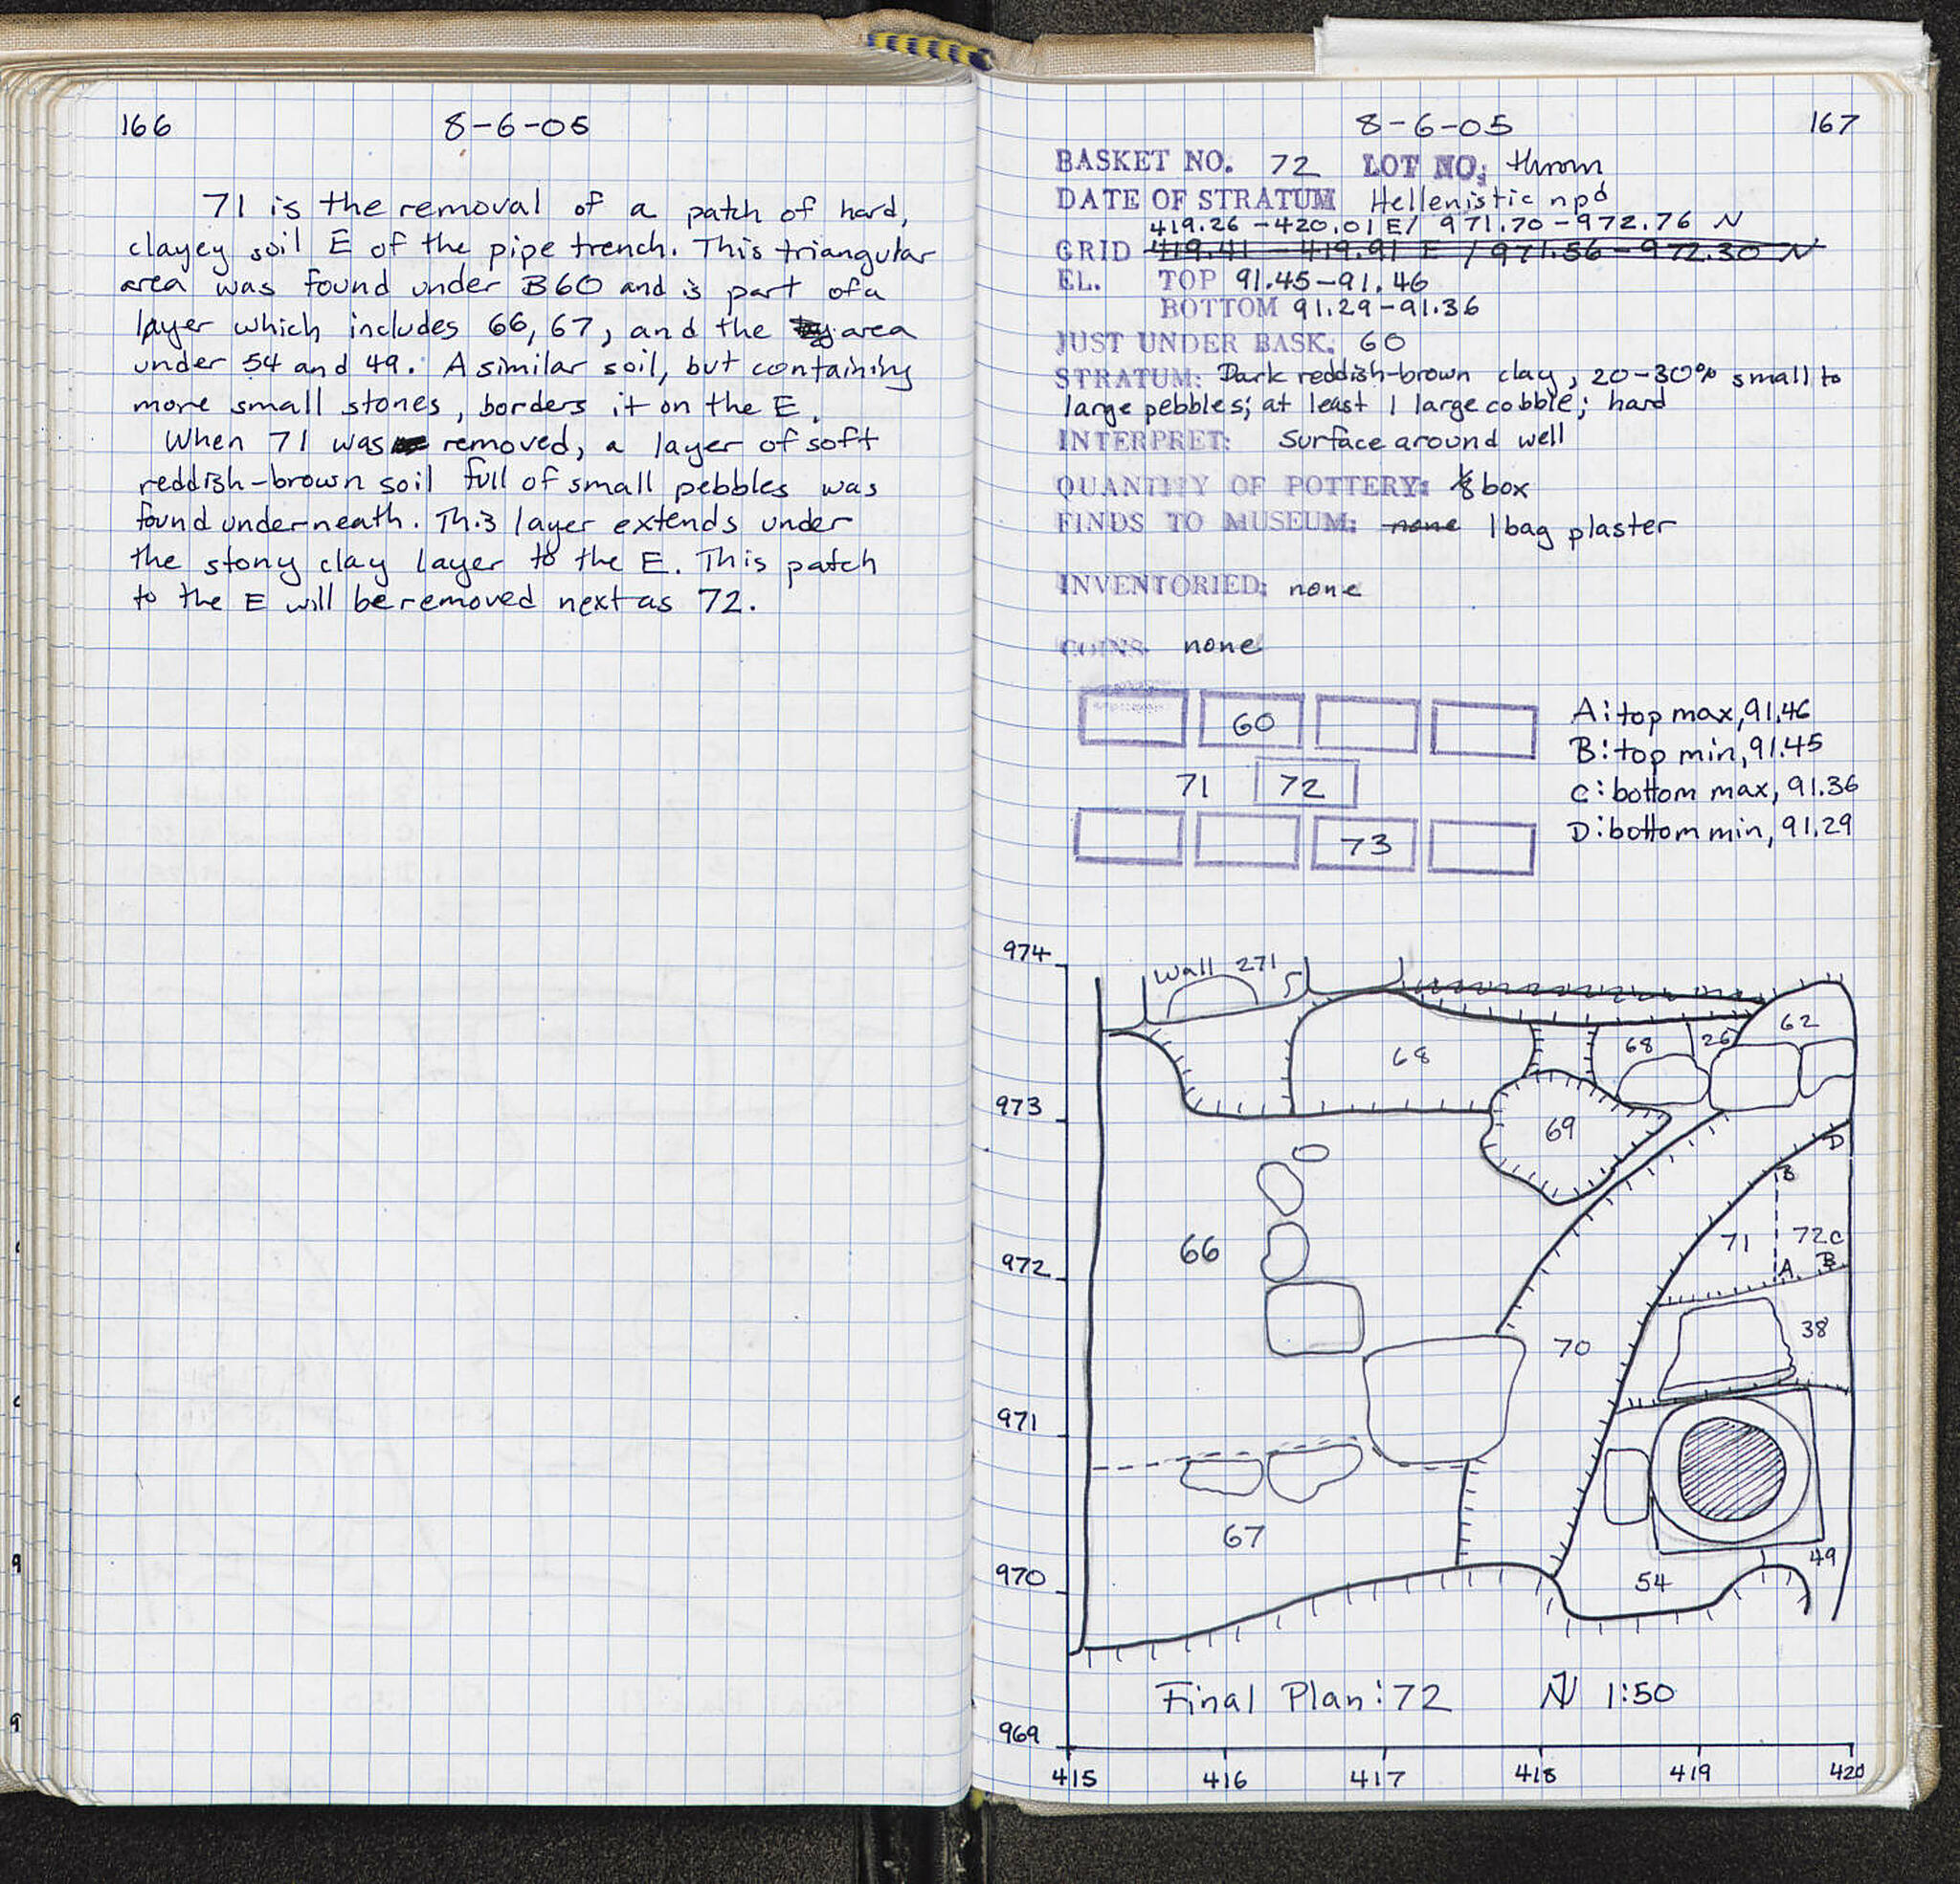 166
8-6-05
71 is the removal of a patch of hard,
clayey soil E of the pipe trench. This triangular
area was found under B60 and is part of a
layer which includes 66, 67, and the area
under 54 and 49. A similar soil, but containing
more small stones, borders it on the E.
When 71 was removed, a layer of soft
reddish-brown soil full of small pebbles was
found underneath. This layer extends under
the stony clay layer to the E. This patch
to the E will be removed next as 72.
8-6-05
167
BASKET NO. 72 LOT NO: thrown
DATE OF STRATUM Hellenistic npd
419.26-420.01 E/ 971.70-972.76 N
GRID 419.41-419.91 E / 971.56-972.30 N
EL. TOP 91.45-91.46
BOTTOM 91.29-91.36
JUST UNDER BASK: 60
STRATUM: Dark reddish-brown clay, 20-30% small to
large pebbles; at least 1 large cobble; hard
INTERPRET: Surface around well
QUANTITY OF POTTERY: box
FINDS TO MUSEUM: none 1 bag plaster
INVENTORIED: none
COINS none
60
71 72
73
A: top max, 91.46
B: top min, 91.45
C: bottom max, 91.36
D: bottom min, 91.29
974
Wall 271
62
68
68
26
973
69
D
B
66
71
72c
972
A
B
38
70
971
67
49
970
54
Final Plan: 72 N 1:50
969
415 416 417 418 419 420